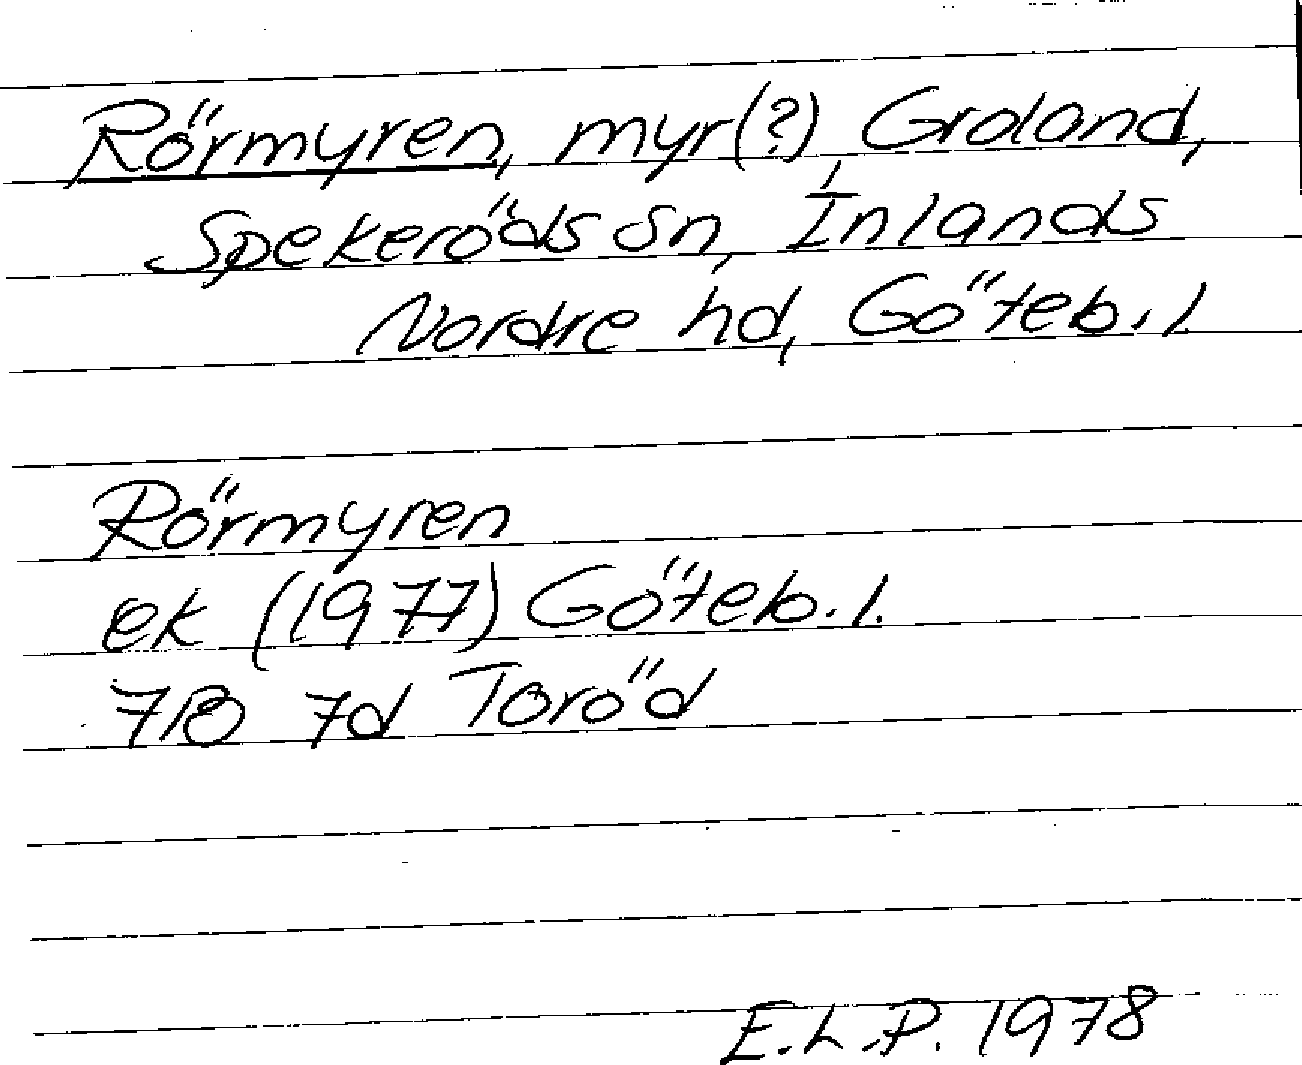 Rörmyren, myr(?), Groland,
Spekeröds sn, Inlands
Nordre hd, Göteb. l.
Rörmyren
ek (1977) Göteb. l.
7B 7d Toröd
E.L.P. 1978